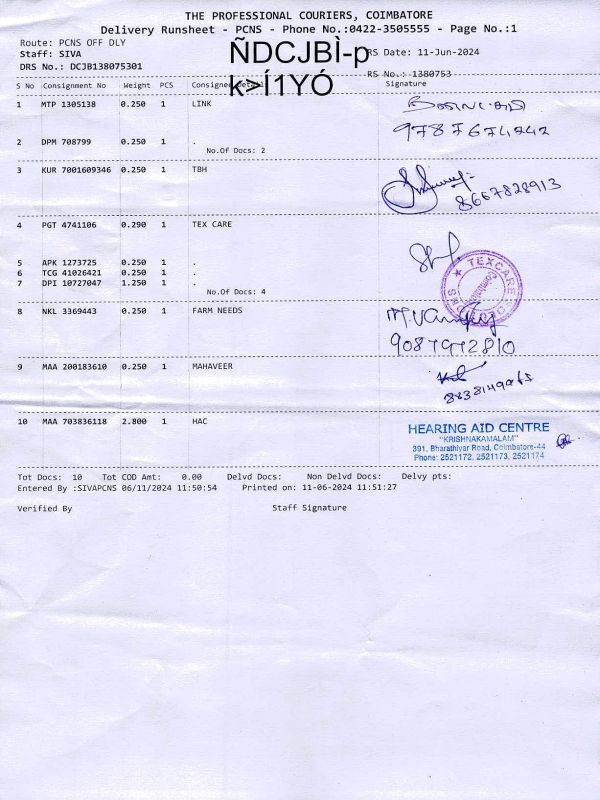 THE PROFESSIONAL COURIERS, COIMBATORE
Delivery Runsheet - PCNS - Phone No.:0422-3505555 - Page No.:1
Route: PCNS OFF DLY
Staff: SIVA
RS Date: 11-Jun-2024
DRS No.: DCJB138075301
ÑDCJBÌ-p
k>Í1YÓ
RS No.: 1380753
S No Consignment No Weight PCS Consignee Detail Signature
1 MTP 1305138 0.250 1 LINK
9787674242
2 DPM 708799 0.250 1 .
No.Of Docs: 2
3 KUR 7001609346 0.250 1 TBH
8667828913
4 PGT 4741106 0.290 1 TEX CARE
5 APK 1273725 0.250 1 .
6 TCG 41026421 0.250 1 .
7 DPI 10727047 1.250 1 .
No.Of Docs: 4
TEXCARE
8 NKL 3369443 0.250 1 FARM NEEDS
9087972810
9 MAA 200183610 0.250 1 MAHAVEER
10 MAA 703836118 2.800 1 HAC
HEARING AID CENTRE
"KRISHNAKAMALAM"
391, Bharathiyar Road, Coimbatore-44
Phone: 2521172, 2521173, 2521174
Tot Docs: 10 Tot COD Amt: 0.00 Delvd Docs: Non Delvd Docs: Delvy pts:
Entered By :SIVAPCNS 06/11/2024 11:50:54 Printed on: 11-06-2024 11:51:27
Verified By Staff Signature